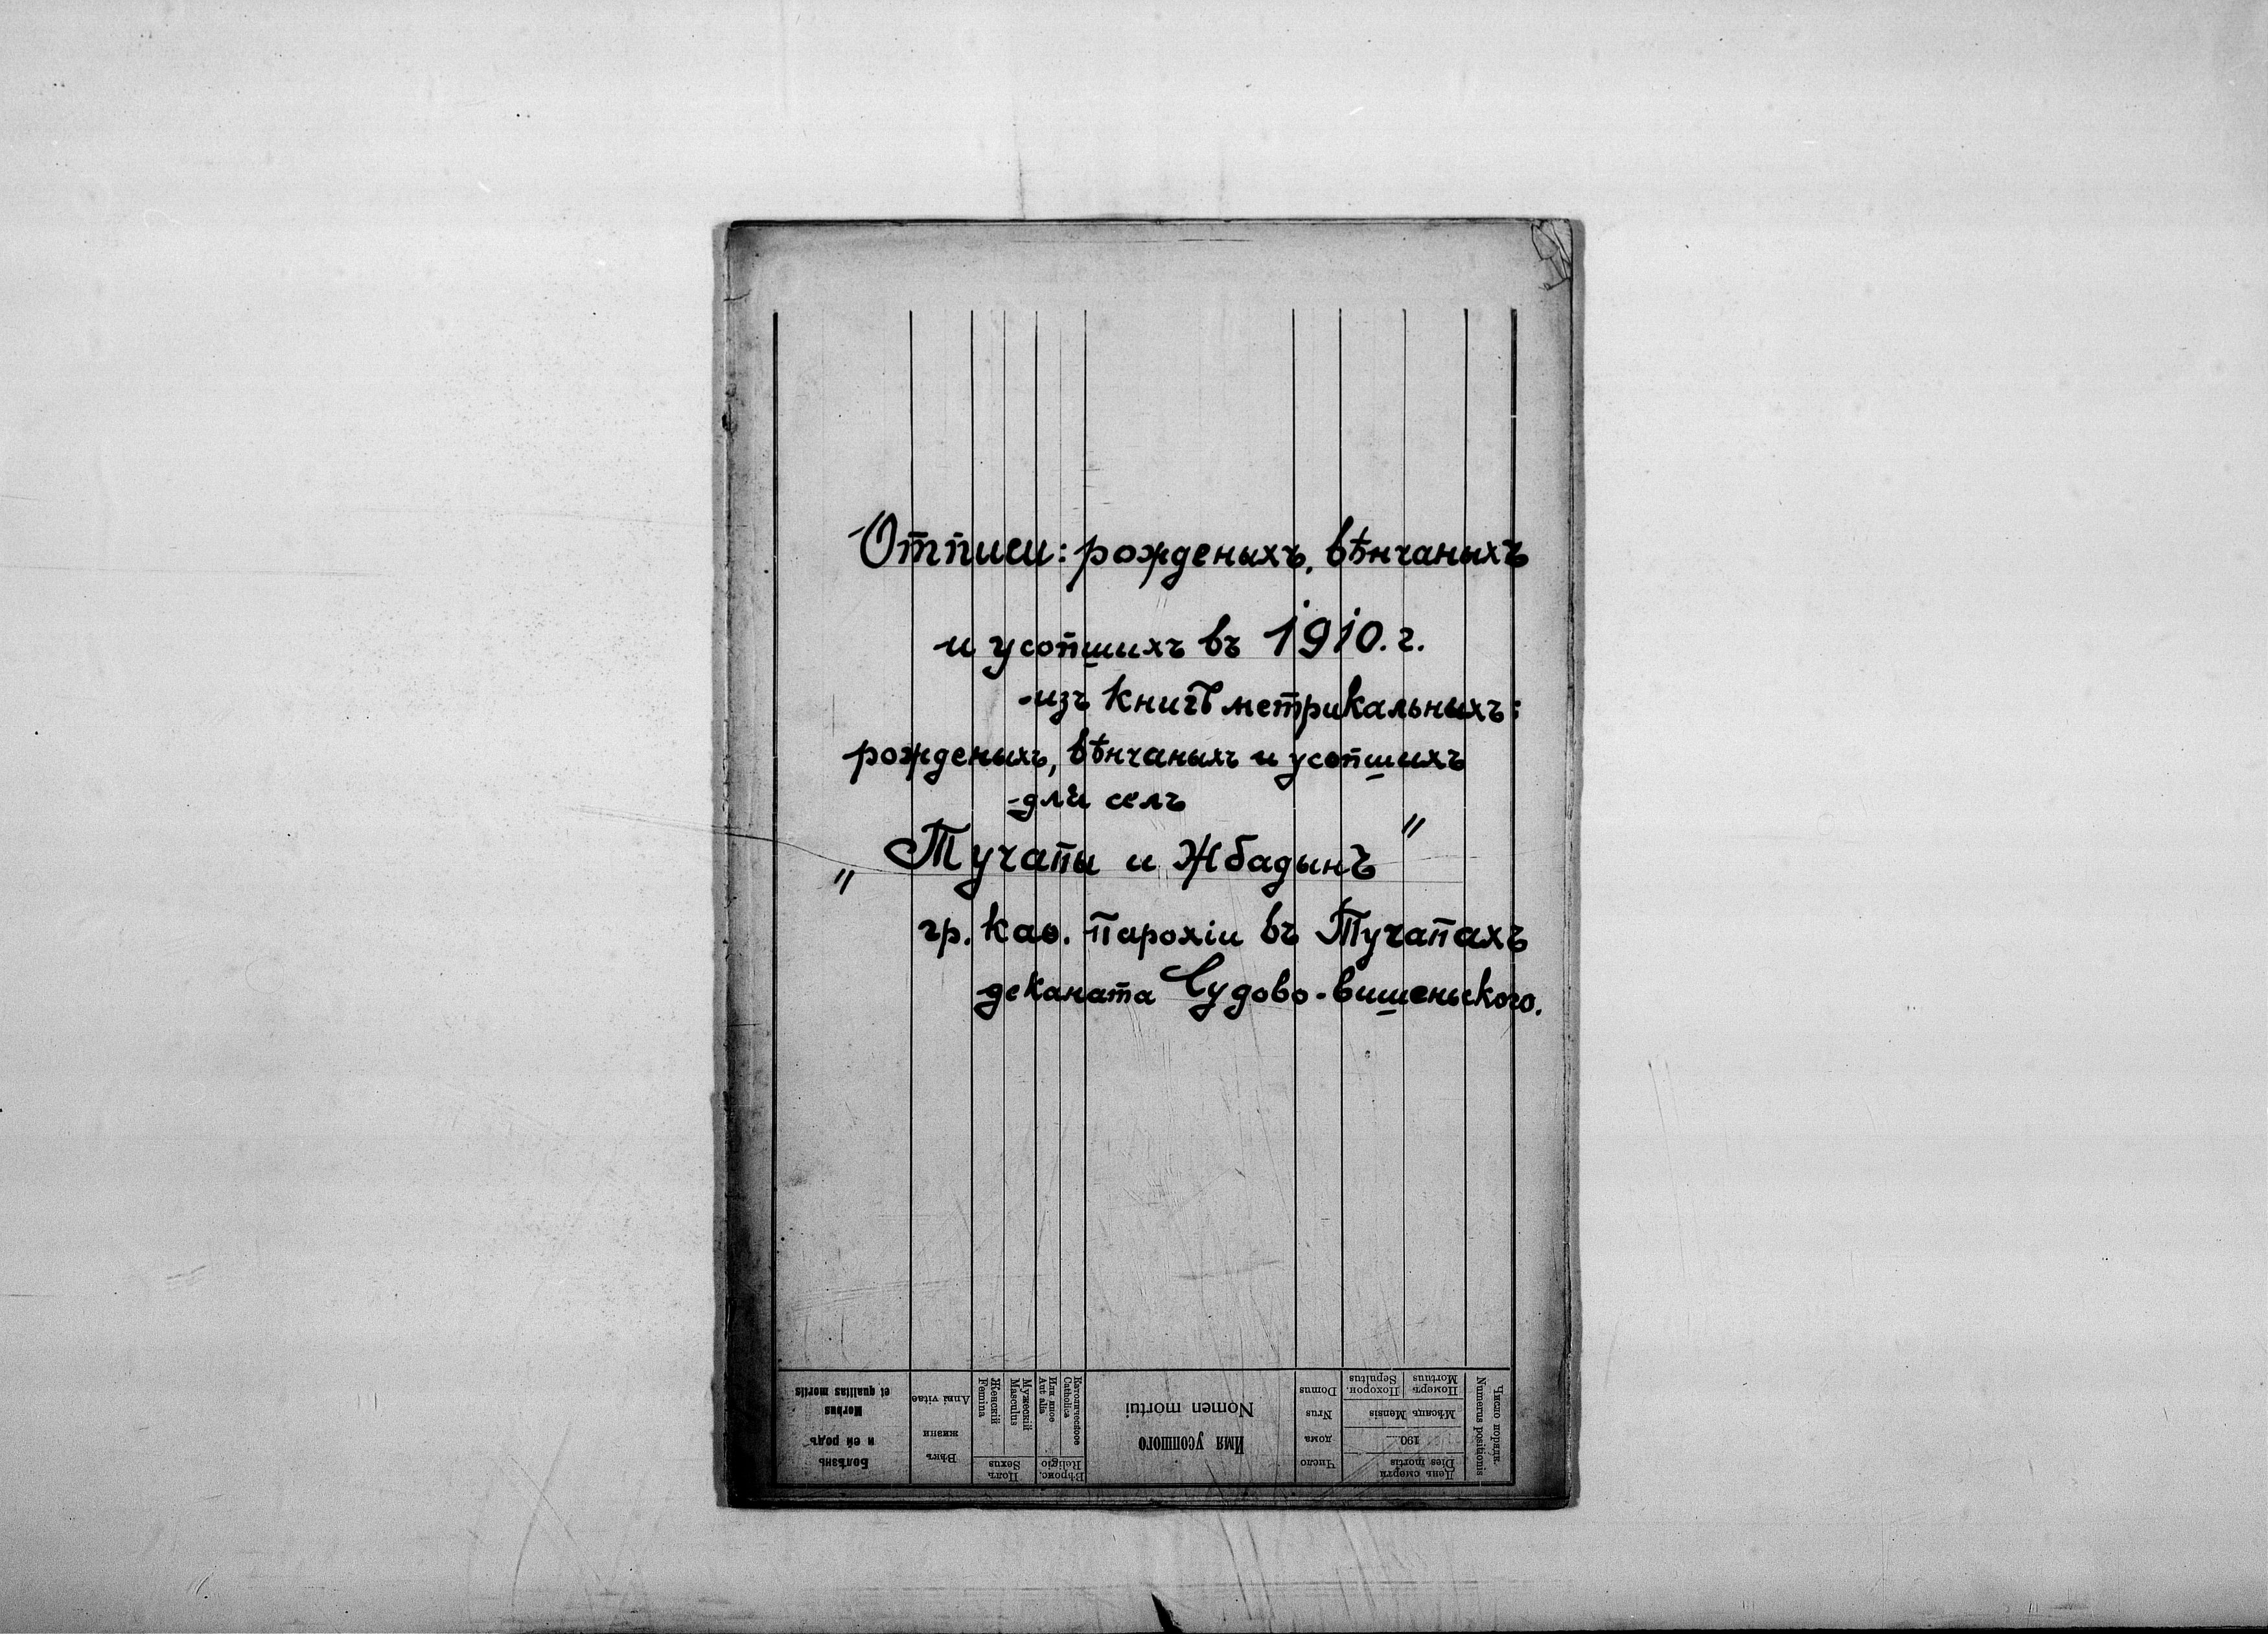 Отписи: рожденыхъ, вѣнчаныхъ
и усопшихъ въ 1910. г.
-изъ книгъ метрикальныхъ:
рожденыхъ, вѣнчаныхъ и усопшихъ
-для селъ
„Тучапы и Жбадынъ"
гр. каѳ. парохіи въ Тучапахъ
деканата Судово-вишеньского.
Число порядк.
Numerus positionis
День смерти
Dies mortis
190
Мѣсяць Mensis
Померъ
Mortuus
Похорон.
Sepultus
Число
дома
Nrus
Domus
Имя усопшого
Nomen mortui
Вѣроис.
Religio
Католическое
Catholica
Или иное
Aut alia
Полъ
Sexus
Мужескій
Masculus
Женскій
Femina
Вѣкъ
жизни
Anni vitae
Болѣзнь
и ей родъ
Morbus
et qualitas mortis